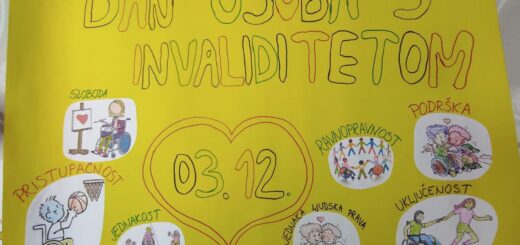 DAN OSOBA S
INVALIDITETOM
SLOBODA
PODRŠKA
RAVNOPRAVNOST
03.12.
PRISTUPAČNOST
JEDNAKOST
JEDNAKA LJUDSKA PRAVA
UKLJUČENOST